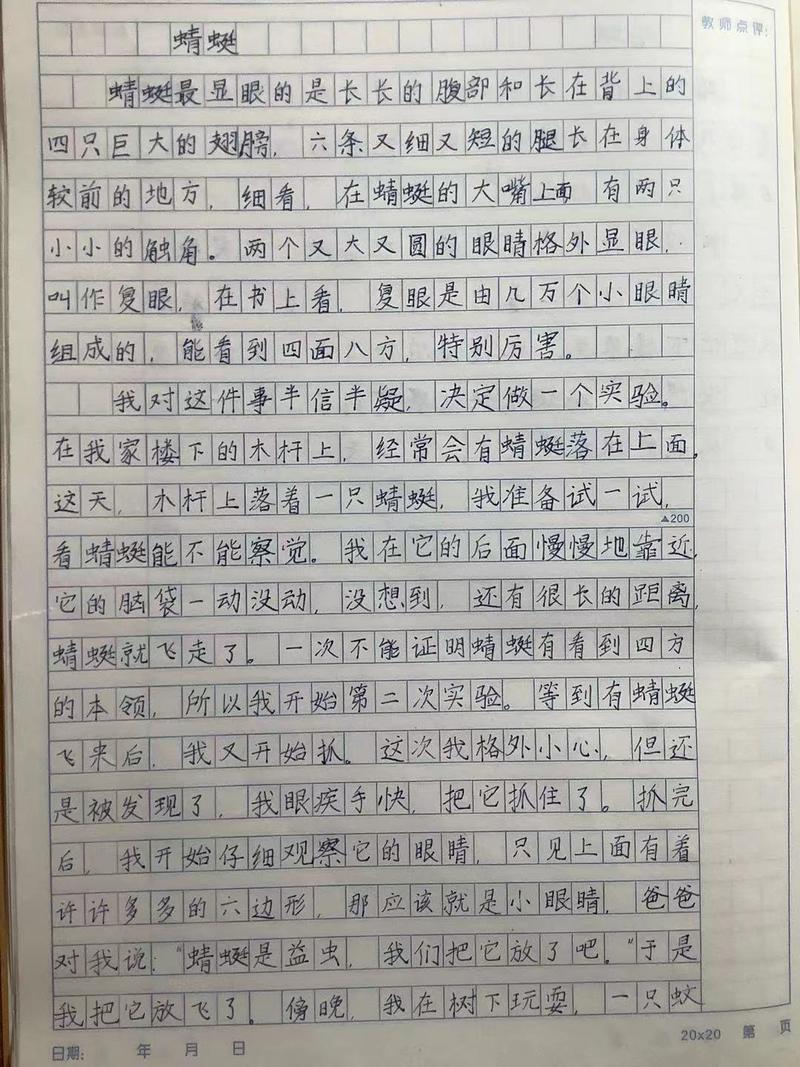 教师点评：
蜻蜓
蜻蜓最显眼的是长长的腹部和长在背上的
四只巨大的翅膀，六条又细又短的腿长在身体
较前的地方，细看，在蜻蜓的大嘴上面有两只
小小的触角。两个又大又圆的眼睛格外显眼，
叫作复眼，在书上看，复眼是由几万个小眼睛
组成的，能看到四面八方，特别厉害。
我对这件事半信半疑，决定做一个实验。
在我家楼下的木杆上，经常会有蜻蜓落在上面，
这天，木杆上落着一只蜻蜓，我准备试一试，
▲200
看蜻蜓能不能察觉。我在它的后面慢慢地靠近，
它的脑袋一动没动，没想到，还有很长的距离，
蜻蜓就飞走了。一次不能证明蜻蜓有看到四方
的本领，所以我开始第二次实验。等到有蜻蜓
飞来后，我又开始抓。这次我格外小心，但还
是被发现了，我眼疾手快，把它抓住了。抓完
后，我开始仔细观察它的眼睛，只见上面有着
许许多多的六边形，那应该就是小眼睛，爸爸
对我说："蜻蜓是益虫，我们把它放了吧。"于是
我把它放飞了。傍晚，我在树下玩耍，一只蚊
20×20 第 页
日期： 年 月 日